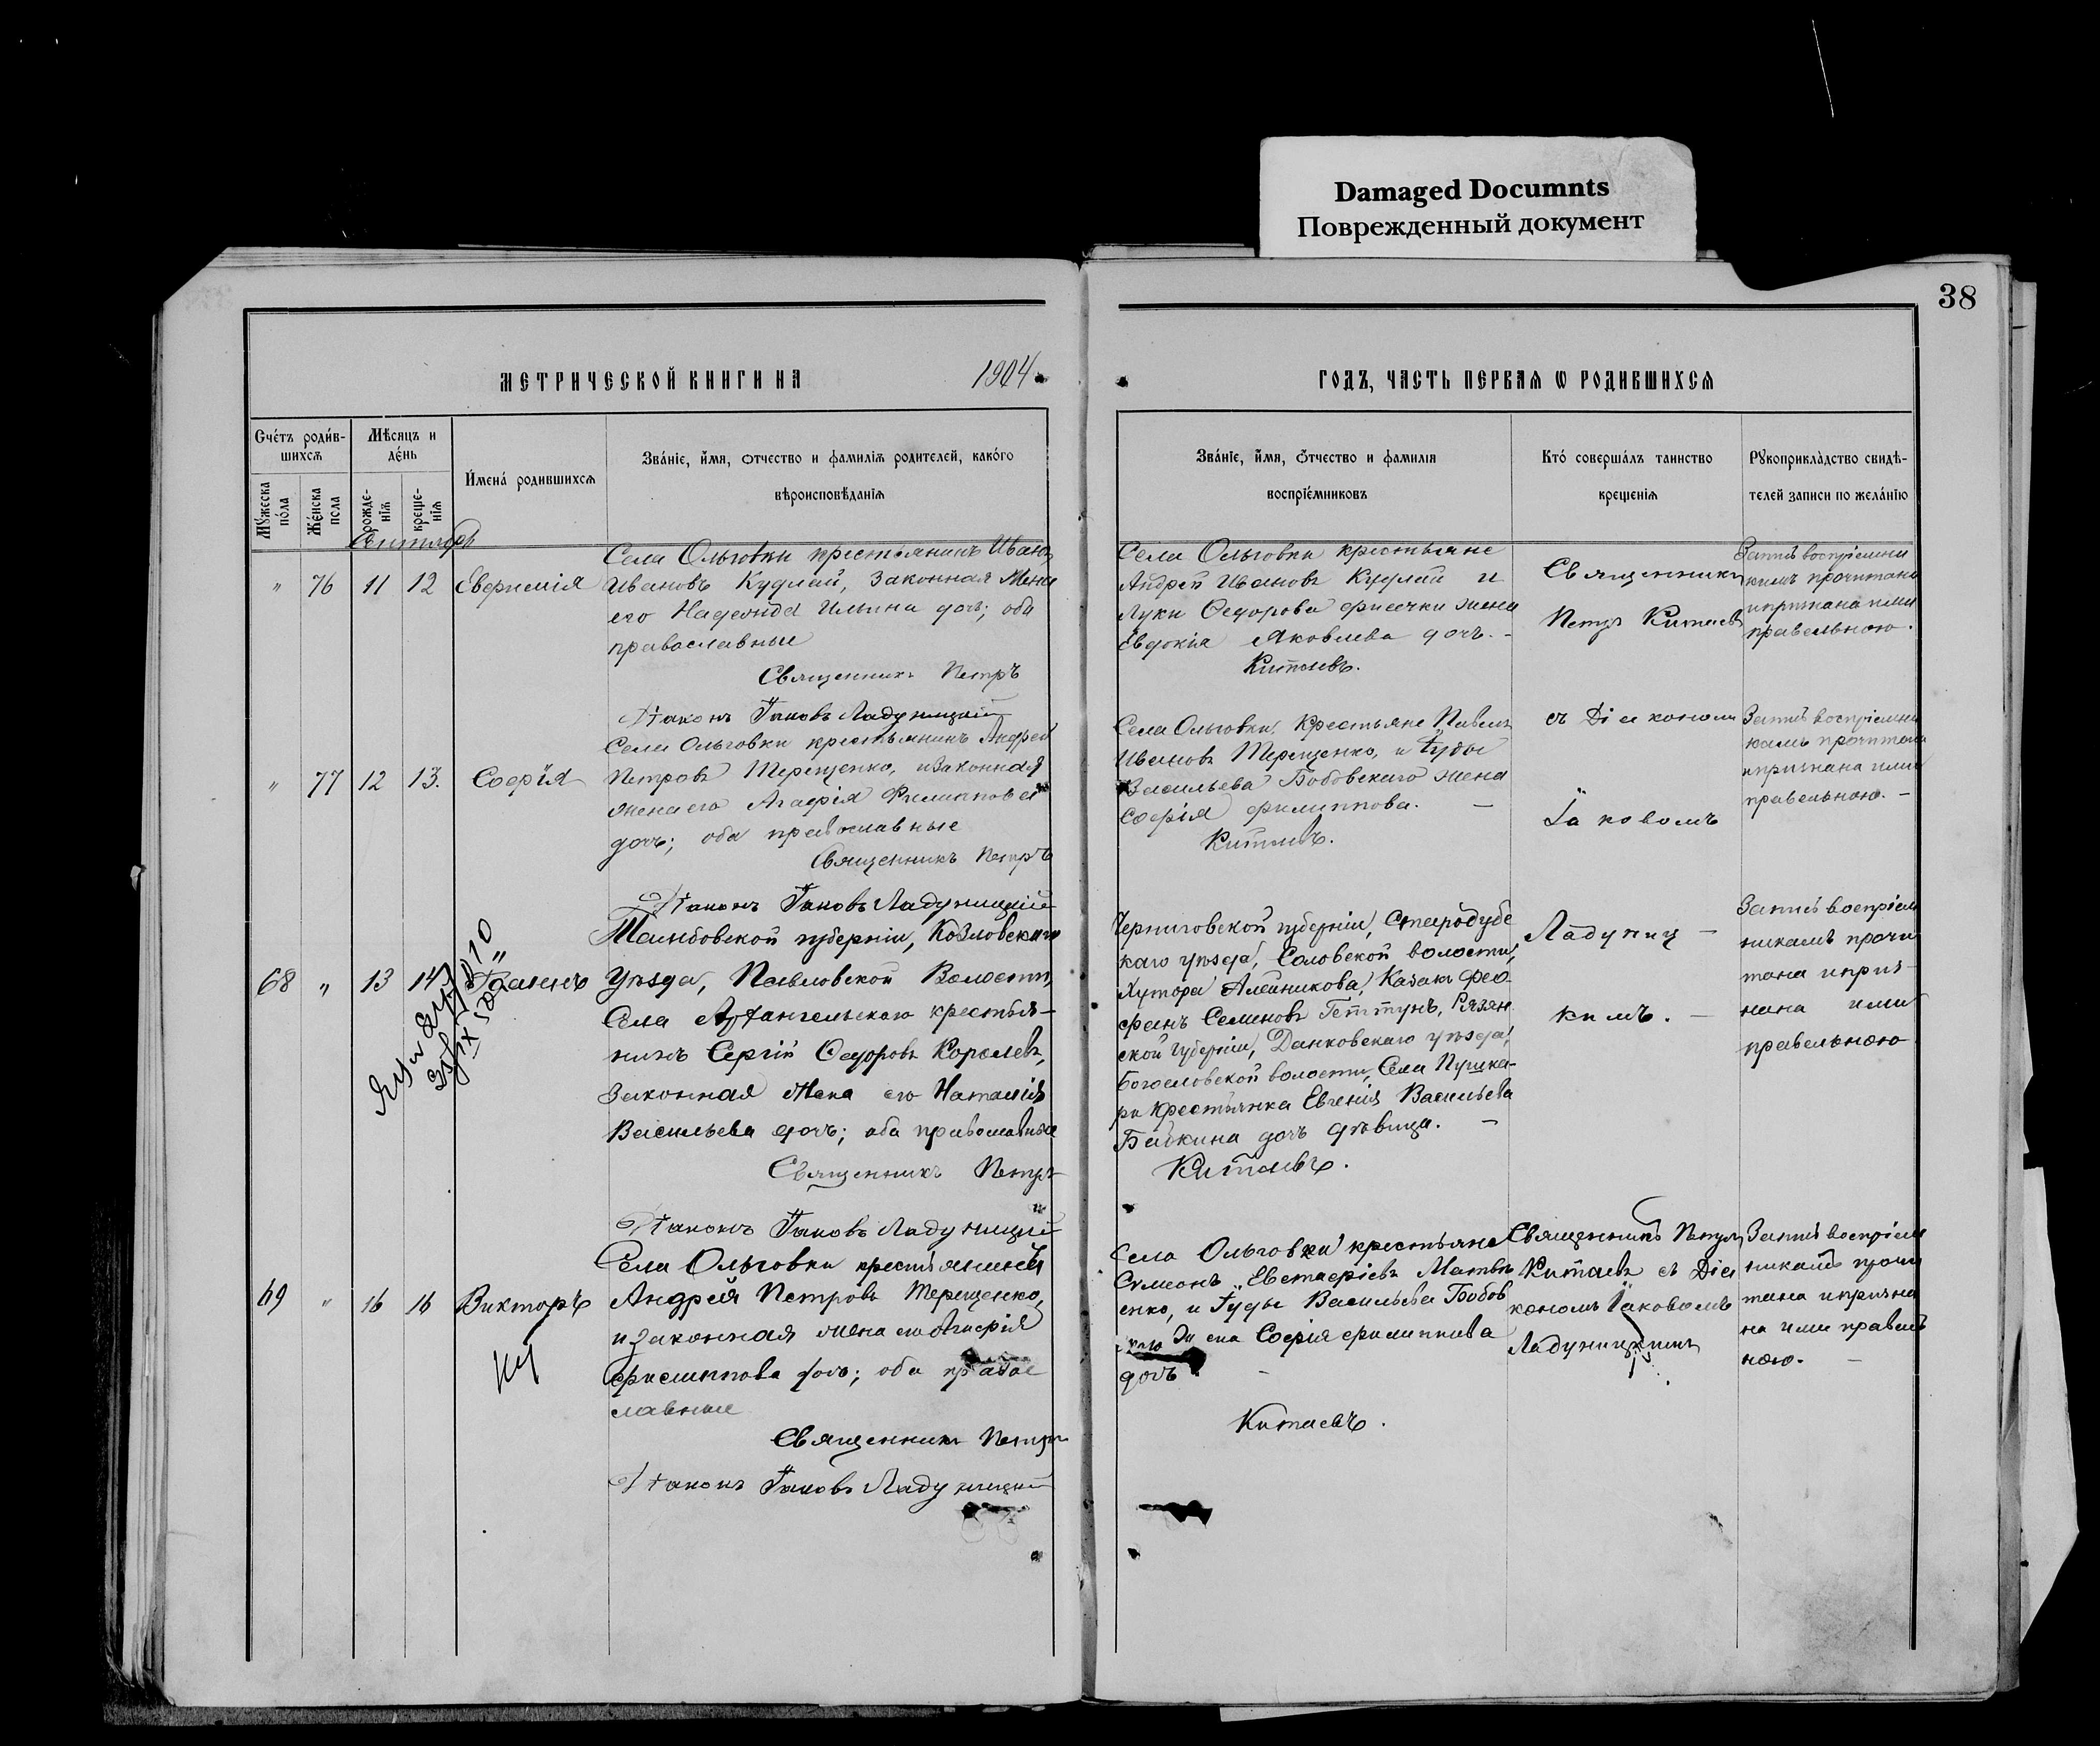 Damaged Documnts
Поврежденный документ
38
МЕТРИЧЕСКОЙ КНИГИ НА 1904
ГОДЪ, ЧАСТЬ ПЕРВАЯ Ѡ РОДИВШИХСЯ
Счетъ родив-
шихся
Мѣсяцъ и
день
Имена родившихся
Званіе, имя, отчество и фамилія родителей, какого
вѣроисповѣданія
Мужеска
пола
Женска
пола
рожде-
нія
креще-
нія
Званіе, имя, отчество и фамилія
воспріемниковъ
Кто совершалъ таинство
крещенія
Рукоприкладство свидѣ-
телей записи по желанію
Сентябрь
" 76 11 12 Евфимія
Села Ольговки крестьянинъ Иванъ
Ивановъ Кудлай, Законная Жена
его Надежда Ильина дочь; оба
православные
Священникъ Петръ
Діаконъ Іаковъ Ладуницкій
Села Ольговки крестьяне
Андрей Ивановъ Кудлай и
Луки Ѳедорова жена
Евдокія Яковлева дочь. -
Китаевъ.
Священникъ
Петръ Китаевъ
Запись воспріемни
камъ прочитана
и признана ими
правельною.
" 77 12 13. Софія
Села Ольговки крестьянинъ Андрей
Петровъ Терещенко, и Законная
жена его Агафія Филиппова
дочь; оба православные
Священникъ Петръ
Діаконъ Іаковъ Ладуницкій
Села Ольговки, Крестьяне Павелъ
Ивановъ Терещенко, и Іуды
Васильева Бобовскаго жена
Софія филиппова. -
Китаевъ.
съ Діакономъ
Іаковомъ
Запись воспріемни
камъ прочитана
и признана ими
правельною. -
68 " 13 14
Тамбовской губерніи, Козловскаго
Уѣзда, Павловской Волости,
Села Архангельскаго крестья-
нинъ Сергій Ѳедоровъ Королевъ,
Законная Жена его Наталія
Васильева дочь; оба православные
Священникъ Петръ
Діаконъ Іаковъ Ладуницкій
Черниговской губерніи, Стародубс
каго уѣзда, Соловской волости,
Хутора Алейникова, Казакъ
Семеновъ Рязан
ской Губерніи, Данковскаго уѣзда,
Богословской волости, Села Пушка-
ри Крестьянка Евгенія Васильева
Бабкина дочь дѣвица. -
Китаевъ.
Ладуниц -
кимъ. -
Запись воспріем
никамъ прочи
тана и приз-
нана ими
правельною
69 " 16 16 Викторъ
Села Ольговки крестьянинъ
Андрей Петровъ Терещенко,
и законная жена его Агафія
филиппова дочь; оба правос
лавные
Священникъ Петръ
Діаконъ Іаковъ Ладуницкій
Села Ольговки крестьяне
Сумеонъ Евстафіевъ Матвѣ
енко, и Іуды Васильева Бобов
скаго жена Софія филиппова
дочь -
Китаевъ.
Священникъ Петръ
Китаевъ съ Діа
кономъ Іаковомъ
Ладуницкимъ
Запись воспріем
никамъ прочи
тана и призна
на ими правель
ною. -